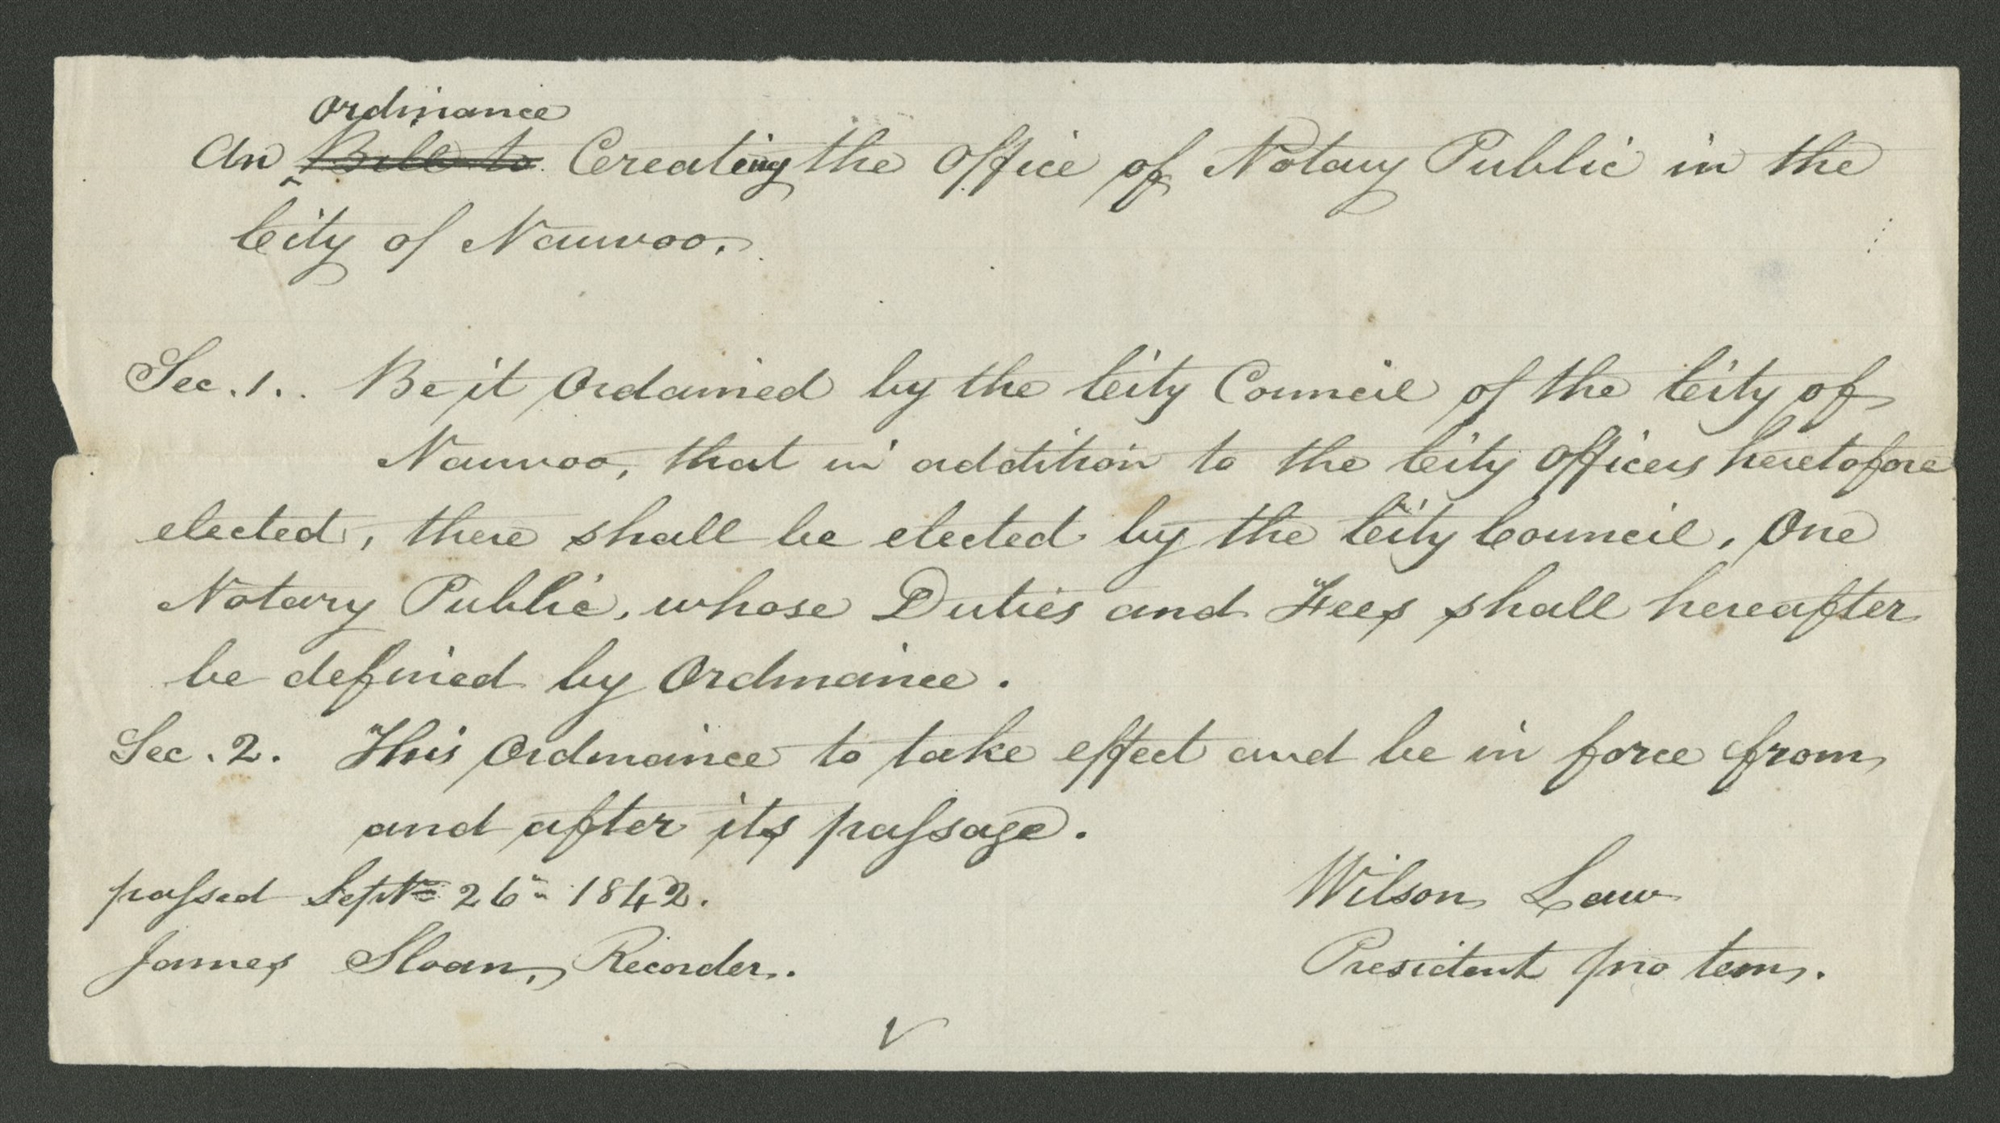 ordinance
An ^ Bill to Creating the Office of Notary Public in the
City of Nauvoo.
Sec. 1.. Be it Ordained by the City Council of the City of
Nauvoo, that in addition to the City Officers heretofore
elected, there shall be elected by the City Council, One
Notary Public, whose Duties and Fees shall hereafter
be defined by Ordinance.
Sec. 2. This Ordinance to take effect and be in force from,
and after its passage.
passed Sept. 26th 1842. Wilson Law
James Sloan, Recorder. President pro tem.